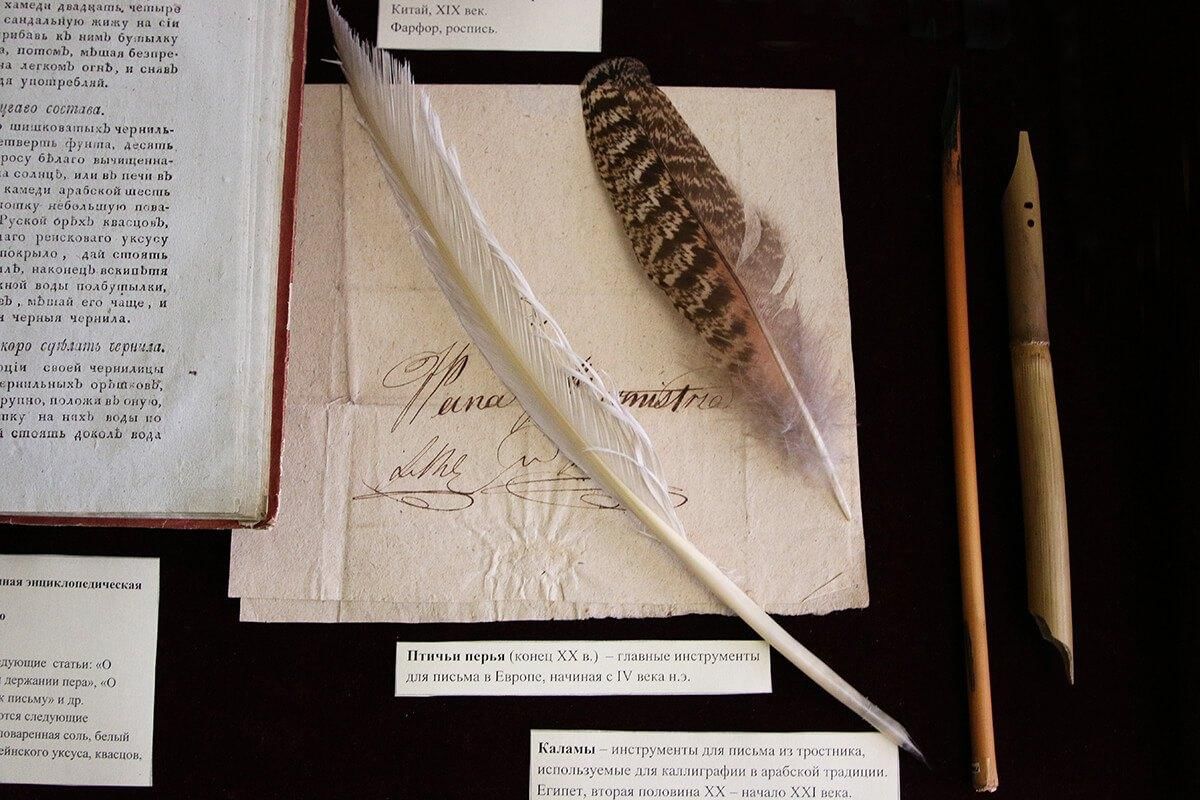 хамеди двадцать, четыре
сандальную жижу на сіи
рибавь кЪ нимЪ бутылку
а, потомЪ, мѣшая безпре-
на легкомЪ огнѣ, и снявЪ
да употребляй.
щаго состава.
шишковатыхЪ черниль-
етверть фунта, десять
росу бѣлаго вычищенна-
а солнцѣ, или вЪ печи вЪ
камеди арабской шесть
Руской орѣхЪ квасцовЪ,
аго ренсковаго уксусу
покрыло, дай стоять
илѣ, наконецЪ вскипѣтя
жной воды полбутылки,
вЪ, мѣшай его чаще, и
и черныя чернила.
коро сдѣлать чернила.
юціи своей чернилицы
ернильныхЪ орѣшковЪ,
рупно, положи вЪ оную,
пку на нихЪ воды по
й стоять доколѣ вода
Китай, XIX век.
Фарфор, роспись.
ная энциклопедическая
о
едующие статьи: «О
и держании пера», «О
к письму» и др.
ются следующие
поваренная соль, белый
ейнского уксуса, квасцов,
Птичьи перья (конец XX в.) – главные инструменты
для письма в Европе, начиная с IV века н.э.
Каламы – инструменты для письма из тростника,
используемые для каллиграфии в арабской традиции.
Египет, вторая половина XX – начало XXI века.